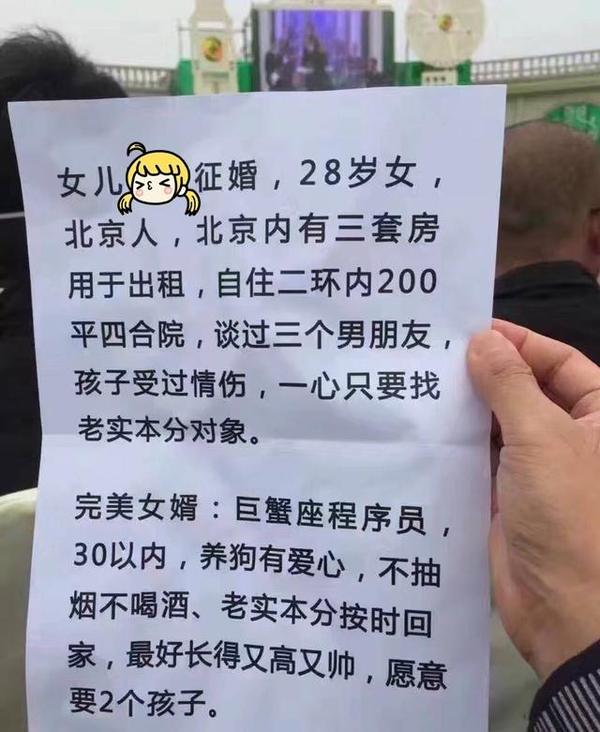 女儿 征婚，28岁女，
北京人，北京内有三套房
用于出租，自住二环内200
平四合院，谈过三个男朋友，
孩子受过情伤，一心只要找
老实本分对象。
完美女婿：巨蟹座程序员，
30以内，养狗有爱心，不抽
烟不喝酒、老实本分按时回
家，最好长得又高又帅，愿意
要2个孩子。